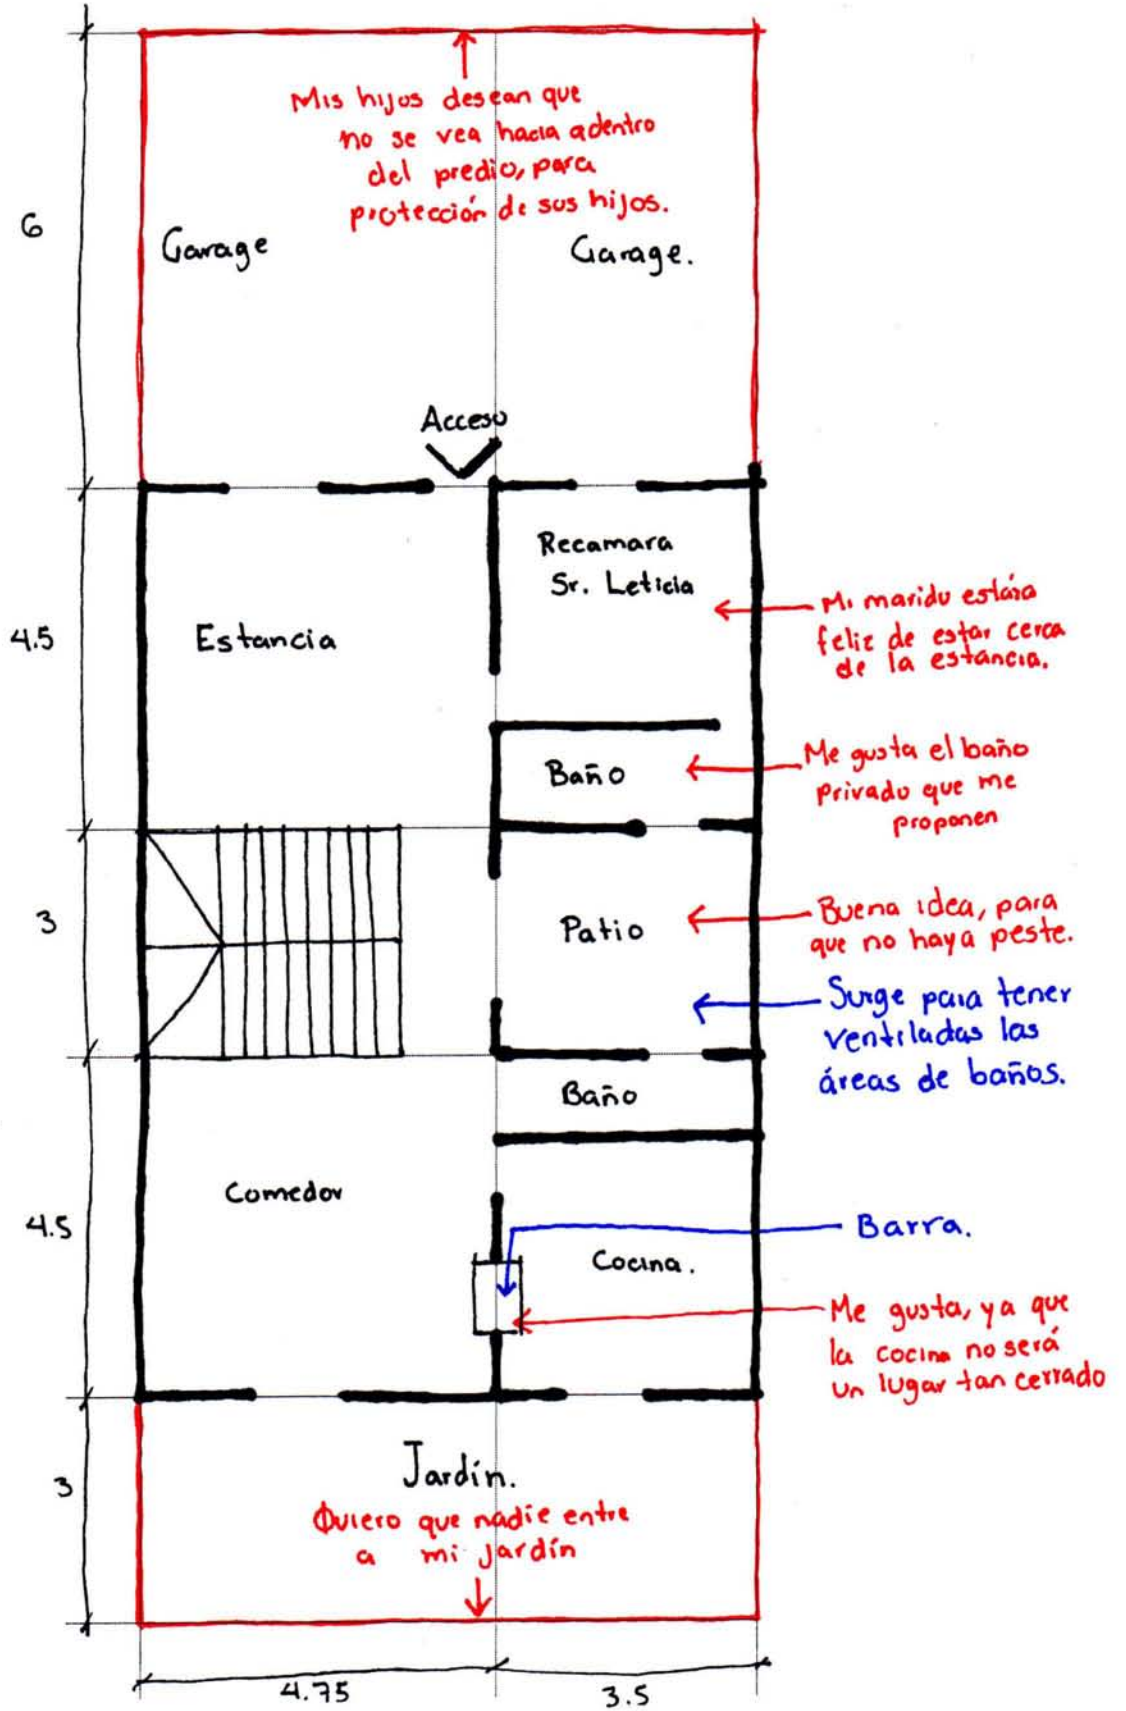 Mis hijos desean que
no se vea hacia adentro
del predio, para
protección de sus hijos.
6
Garage
Garage.
Acceso
Recamara
Sr. Leticia
4.5
Estancia
Mi marido estára
feliz de estar cerca
de la estancia.
Baño
Me gusta el baño
privado que me
proponen
3
Patio
Buena idea, para
que no haya peste.
Surge para tener
ventiladas las
áreas de baños.
Baño
Comedor
4.5
Barra.
Cocina.
Me gusta, ya que
la cocina no será
un lugar tan cerrado
3
Jardín.
Quiero que nadie entre
a mi jardín
4.75
3.5